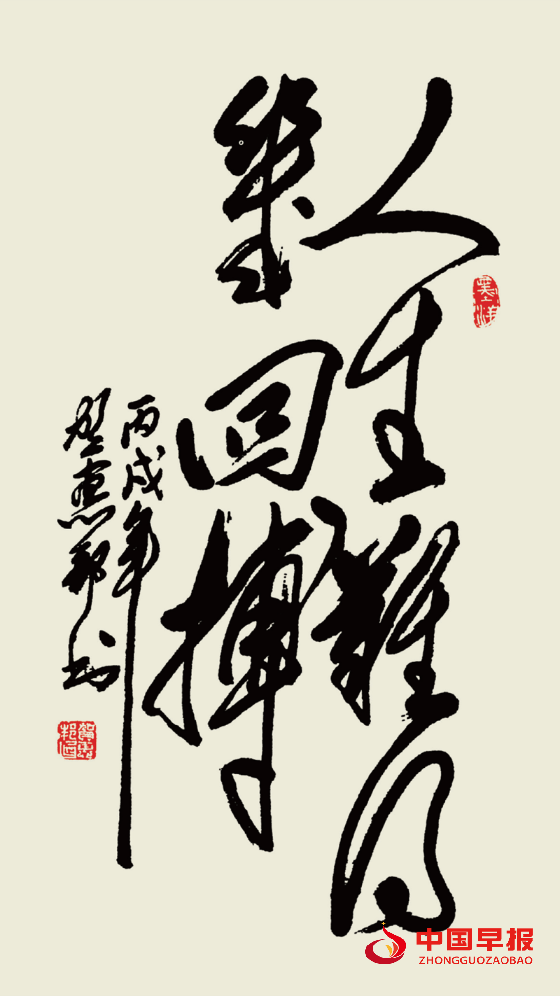 人生難得
幾回搏
丙戌年
中国早报
ZHONGGUOZAOBAO